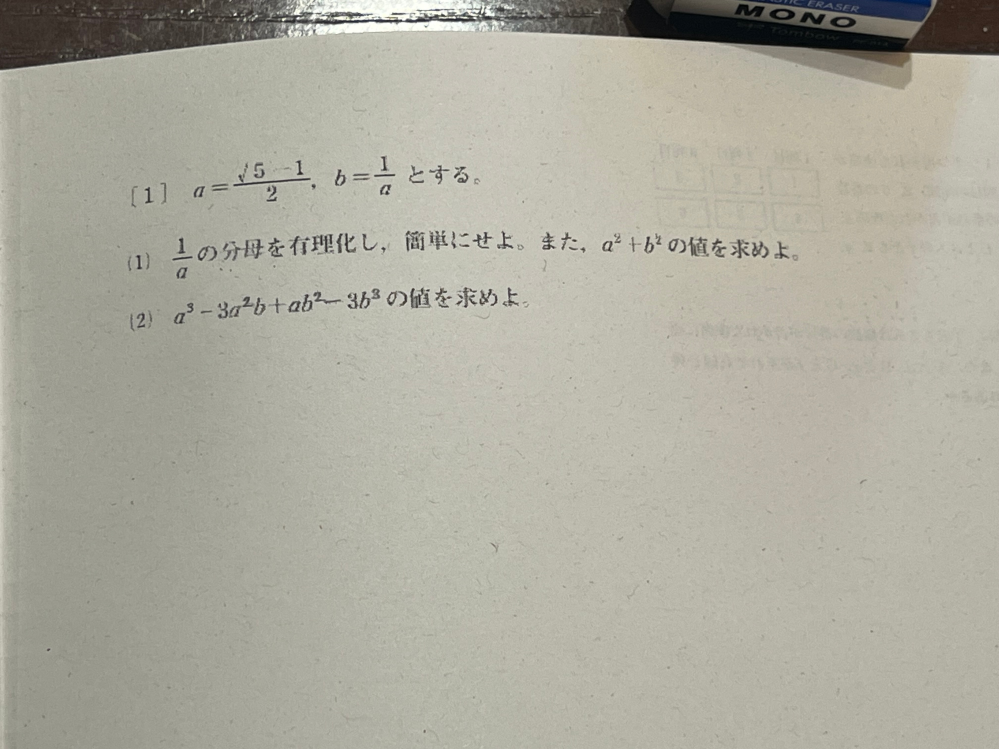 PLASTIC ERASER
MONO
Tombow
[1] a=\frac{√5-1}{2}, b=\frac{1}{a} とする。
(1) \frac{1}{a}の分母を有理化し,簡単にせよ。また,a²+b²の値を求めよ。
(2) a³-3a²b+ab²-3b³の値を求めよ。